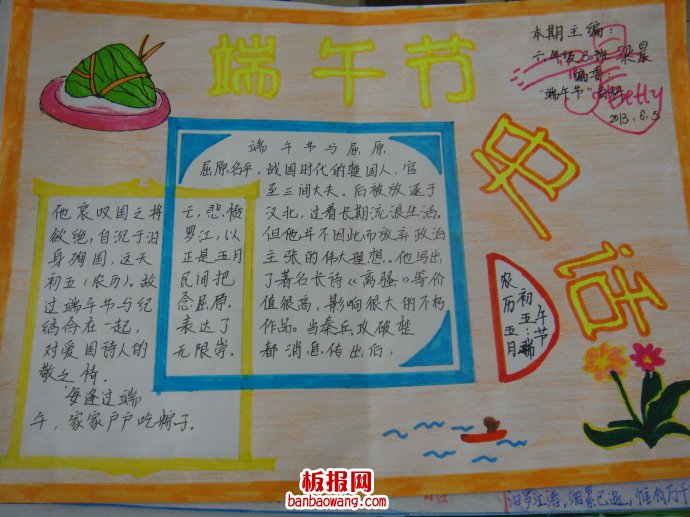 端午节
本期主编：
六年级3班 梁晨
编委：
"端午节"
Betty
2013.6.5
名话
端午节与屈原
屈原名平，战国时代的楚国人，官
至三闾大夫。后被放逐于
汉北，过着长期流浪生活。
但他并不因此而放弃政治
主张的伟大理想。他写出
了著名长诗《离骚》等价
值很高，影响很大的不朽
作品。当秦兵攻破楚
都消息传出后，
他哀叹国之将亡，悲愤
欲绝，自沉于汨罗江，以
身殉国，这天正是五月
初五（农历）。故民间把
过端午节与纪念屈原
结合在一起，表达了
对爱国诗人的无限崇
敬之情.
每逢过端
午，家家户户吃粽子.
农历五月
初五：端
午节
板报网
banbaowang.com